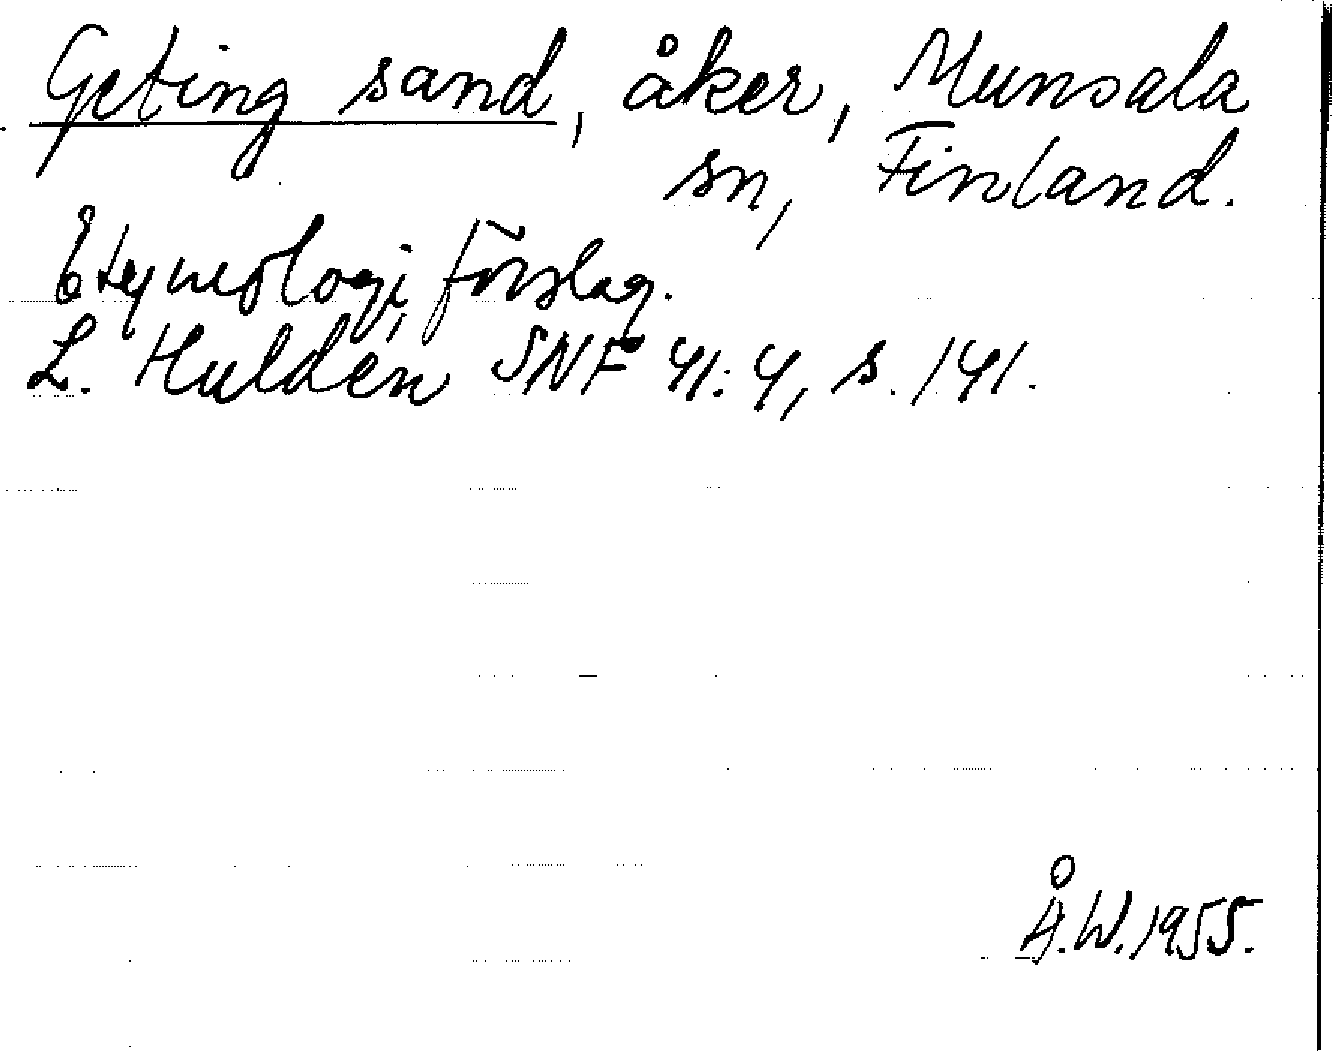 Geting sand, åker, Munsala
sn, Finland.
Etymologi, förslag.
L. Huldén SNF 41:4, s. 141.
Å.W. 1955.